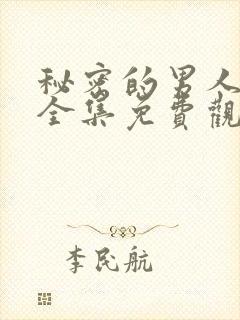 秘密的男人
全集免費觀
李民航